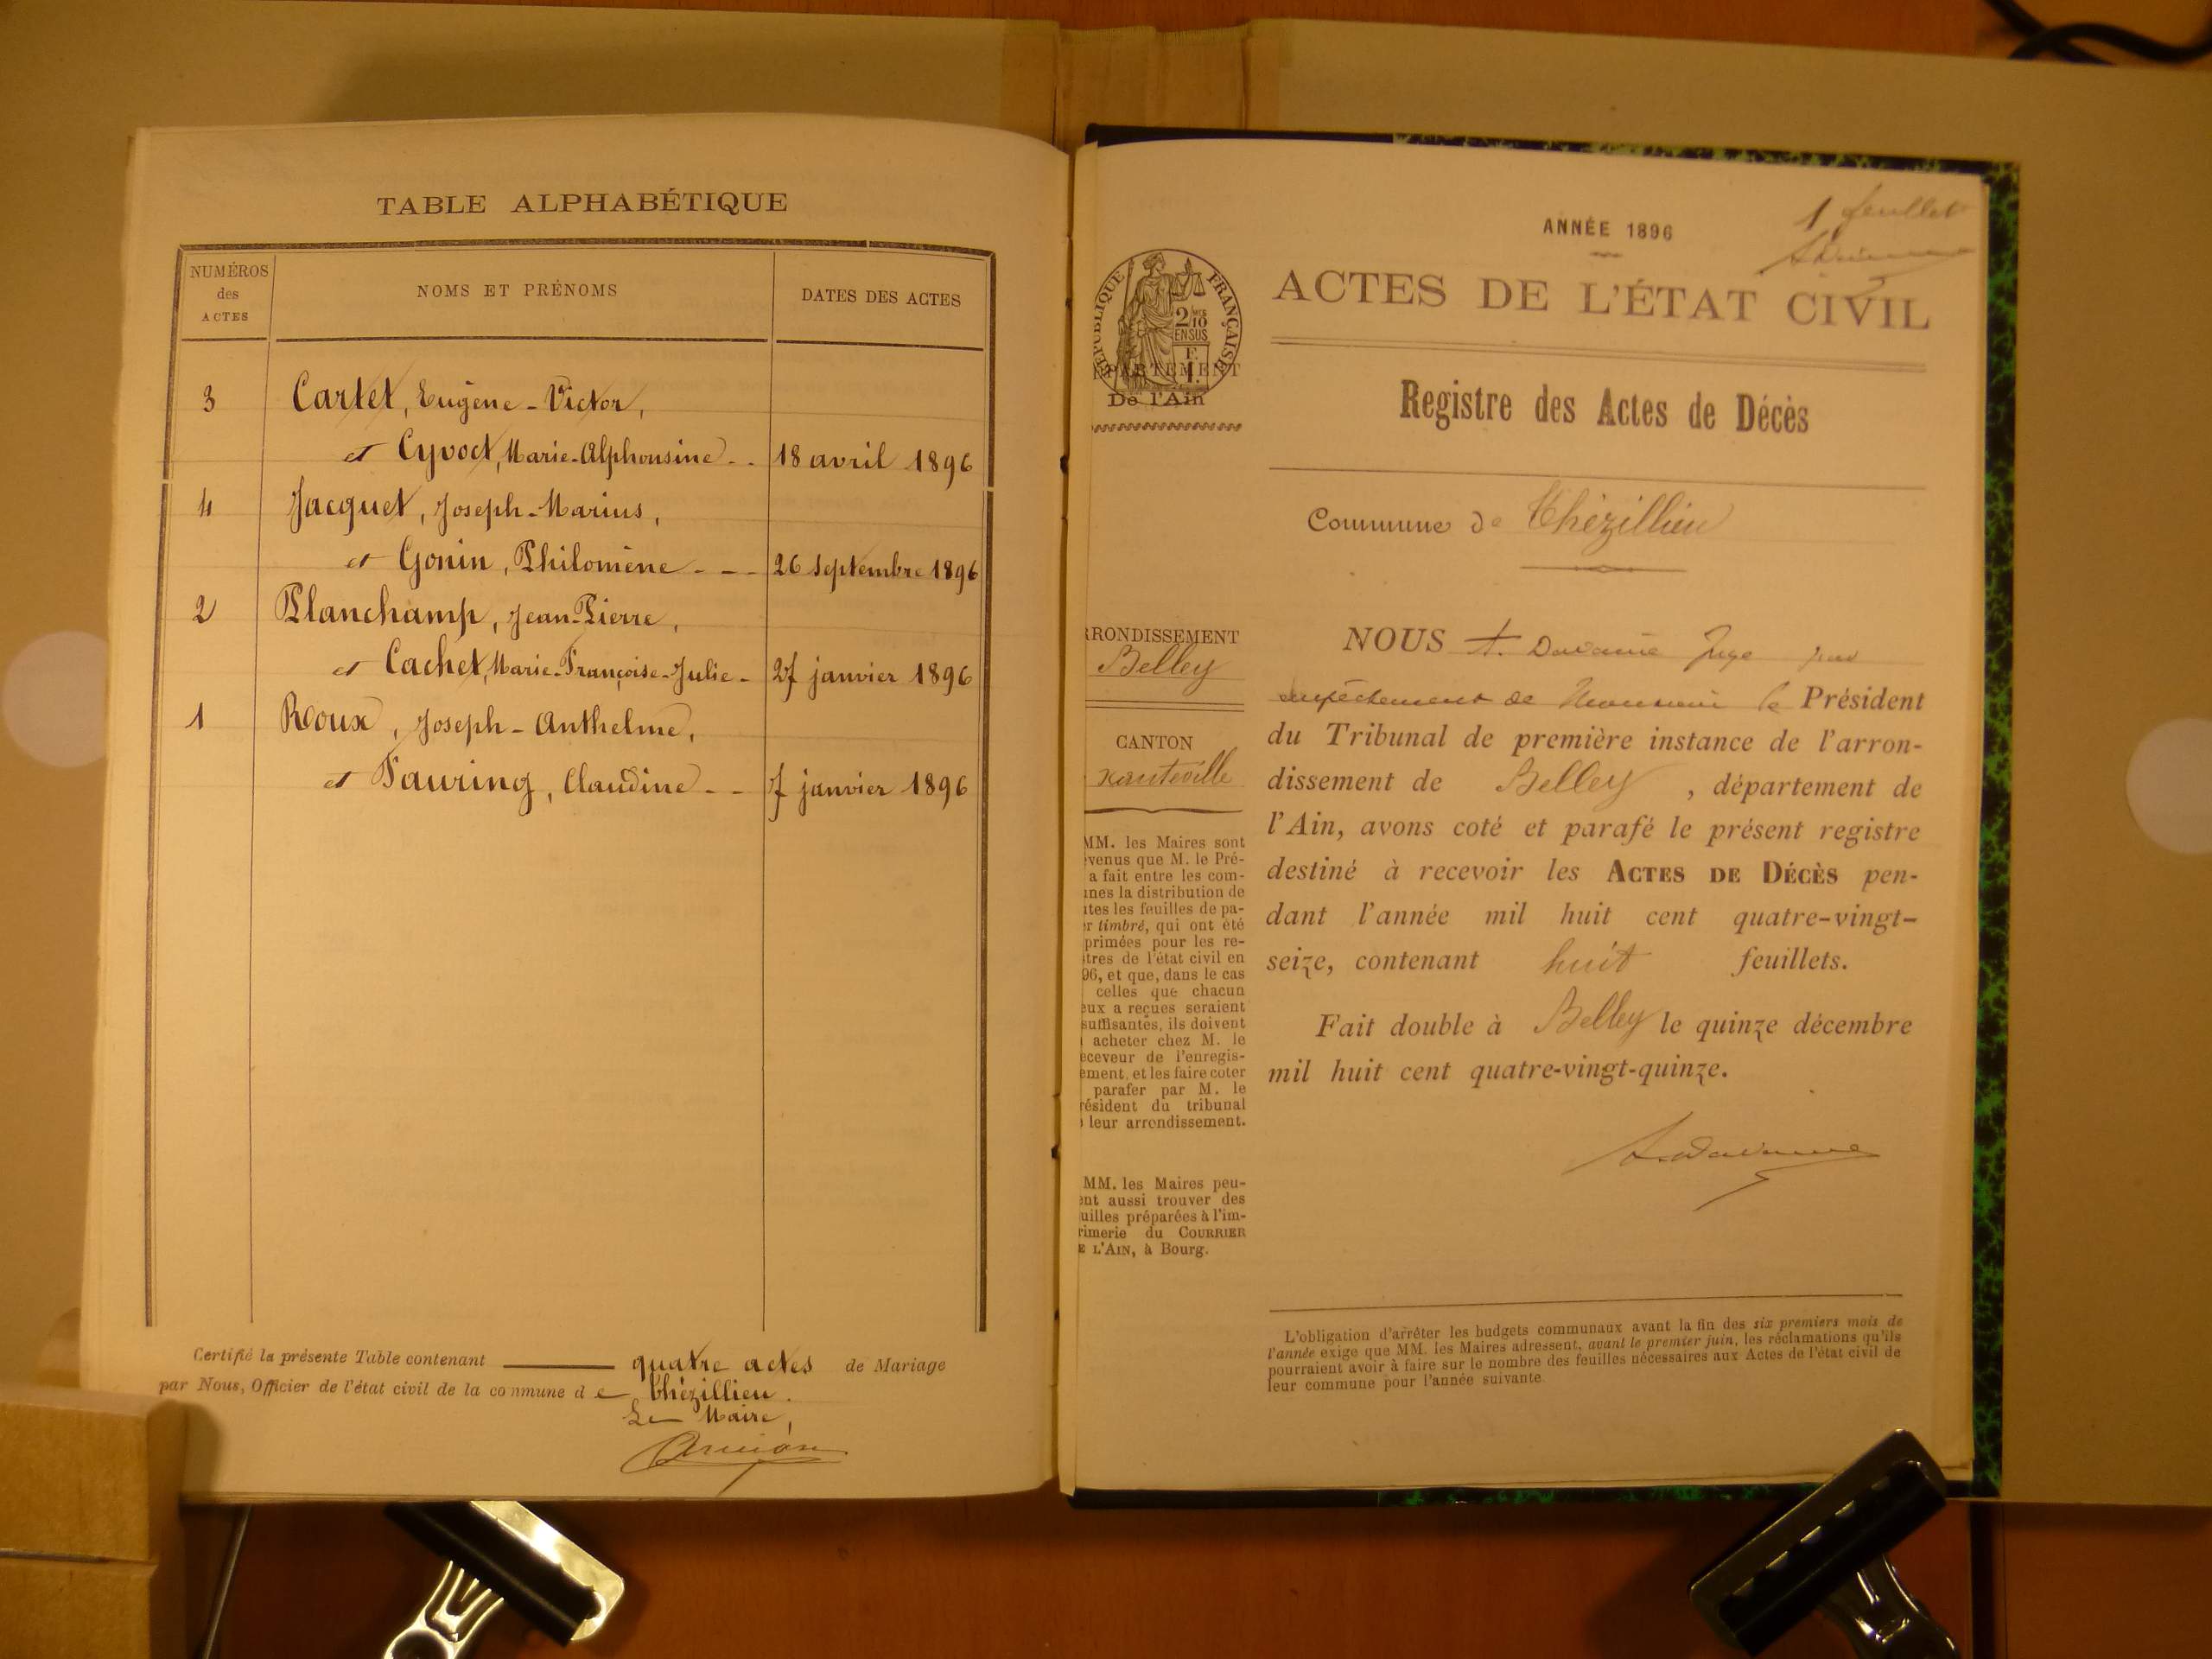 TABLE ALPHABÉTIQUE
NUMÉROS
des
ACTES
NOMS ET PRÉNOMS
DATES DES ACTES
3 Cartet, Eugène-Victor,
et Cyvoct, Marie-Alphonsine - - 18 avril 1896
4 Jacquet, Joseph-Marius,
et Gonin, Philomène - - - 26 septembre 1896
2 Planchamp, Jean-Pierre,
et Cachet, Marie-Françoise-Julie - 27 janvier 1896
1 Roux, Joseph-Anthelme,
et Fauring, Claudine - - 7 janvier 1896
Certifié la présente Table contenant quatre actes de Mariage
par Nous, Officier de l'état civil de la commune de Thézillieu.
Le Maire,
1 feuillet
ANNÉE 1896
ACTES DE L'ÉTAT CIVIL
RÉPUBLIQUE FRANÇAISE
2/10
EN SUS
F.
1.
PARTEMENT
De l'Ain
Registre des Actes de Décès
Commune de Thézillieu
RRONDISSEMENT
Belley
CANTON
Hauteville
MM. les Maires sont
venus que M. le Pré-
a fait entre les com-
unes la distribution de
utes les feuilles de pa-
r timbré, qui ont été
primées pour les re-
tres de l'état civil en
96, et que, dans le cas
celles que chacun
eux a reçues seraient
suffisantes, ils doivent
acheter chez M. le
eceveur de l'enregis-
ement, et les faire coter
parafer par M. le
résident du tribunal
leur arrondissement.
MM. les Maires peu-
ent aussi trouver des
uilles préparées à l'im-
rimerie du COURRIER
E L'AIN, à Bourg.
NOUS Juge par
empêchement de Monsieur le Président
du Tribunal de première instance de l'arron-
dissement de Belley, département de
l'Ain, avons coté et parafé le présent registre
destiné à recevoir les ACTES DE DÉCÈS pen-
dant l'année mil huit cent quatre-vingt-
seize, contenant huit feuillets.
Fait double à Belley le quinze décembre
mil huit cent quatre-vingt-quinze.
L'obligation d'arrêter les budgets communaux avant la fin des six premiers mois de
l'année exige que MM. les Maires adressent, avant le premier juin, les réclamations qu'ils
pourraient avoir à faire sur le nombre des feuilles nécessaires aux Actes de l'état civil de
leur commune pour l'année suivante.